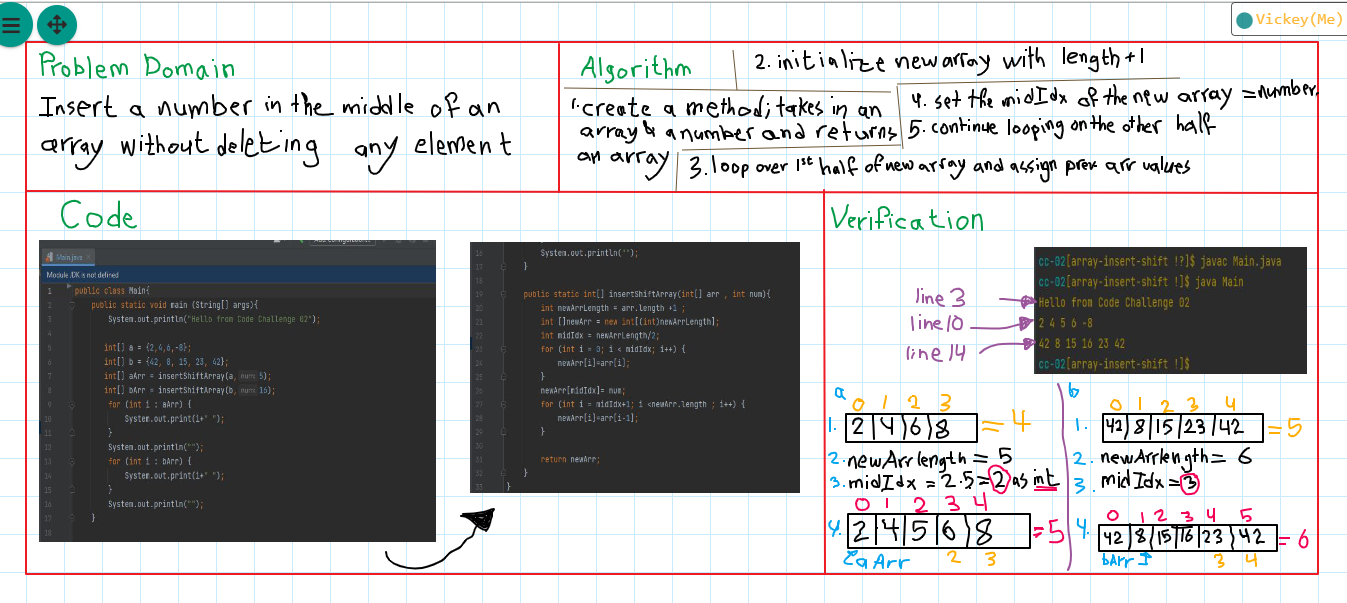 Vickey(Me)
Problem Domain
Insert a number in the middle of an
array without deleting any element
Algorithm
2. initialize new array with length +1
1. create a method; takes in an
array & a number and returns
an array
4. set the midIdx of the new array = number.
5. continue looping on the other half
3. loop over 1st half of new array and assign prev arr values
Code
Main.java
Module JDK is not defined
1 public class Main{
2 public static void main (String[] args){
3 System.out.println("Hello from Code Challenge 02");
4
5 int[] a = {2,4,6,-8};
6 int[] b = {42, 8, 15, 23, 42};
7 int[] aArr = insertShiftArray(a, num: 5);
8 int[] bArr = insertShiftArray(b, num: 16);
9 for (int i : aArr) {
10 System.out.print(i+" ");
11 }
12 System.out.println("");
13 for (int i : bArr) {
14 System.out.print(i+" ");
15 }
16 System.out.println("");
17 }
18
16 System.out.println("");
17 }
18
19 public static int[] insertShiftArray(int[] arr , int num){
20 int newArrLength = arr.length +1 ;
21 int []newArr = new int[(int)newArrLength];
22 int midIdx = newArrLength/2;
23 for (int i = 0; i < midIdx; i++) {
24 newArr[i]=arr[i];
25 }
26 newArr[midIdx]= num;
27 for (int i = midIdx+1; i <newArr.length ; i++) {
28 newArr[i]=arr[i-1];
29 }
30
31 return newArr;
32 }
33 }
Verification
cc-02[array-insert-shift !?]$ javac Main.java
cc-02[array-insert-shift !]$ java Main
line 3
Hello from Code Challenge 02
line 10
2 4 5 6 -8
line 14
42 8 15 16 23 42
cc-02[array-insert-shift !]$
a
0 1 2 3
1. 2 4 6 8 = 4
2. newArrlength = 5
3. midIdx = 2.5 = 2 as int
0 1 2 3 4
4. 2 4 5 6 8 = 5
aArr 2 3
b
0 1 2 3 4
1. 42 8 15 23 42 = 5
2. newArrlength = 6
3. midIdx = 3
0 1 2 3 4 5
4. 42 8 15 16 23 42 = 6
bArr 3 4